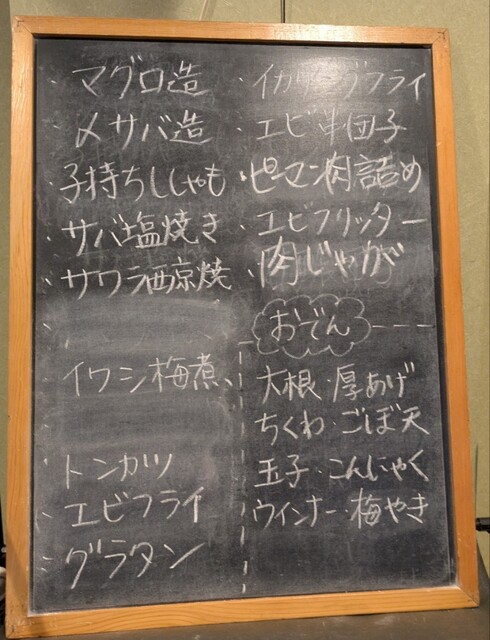 マグロ造
〆サバ造
子持ちししゃも
サバ塩焼き
サワラ西京焼
イワシ梅煮
トンカツ
エビフライ
グラタン
イカリングフライ
エビ串団子
ピーマン肉詰め
エビフリッター
肉じゃが
おでん
大根・厚あげ
ちくわ・ごぼ天
玉子・こんにゃく
ウインナー・梅やき